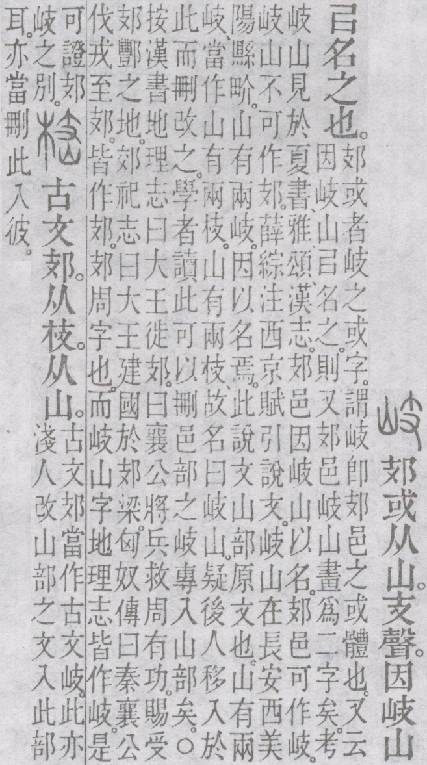 岐 𨙸或从山。支聲。因岐山
㠯名之也。
𨙸或者岐之或字。謂岐卽𨙸邑之或體也。又云
因岐山㠯名之。則又𨙸邑岐山畫爲二字矣。考
岐山見於夏書、雅頌。漢志。𨙸邑因岐山以名。𨙸邑可作岐。
岐山不可作𨙸。薛綜注西京賦引說文。岐山在長安西美
陽縣畍。山有兩岐。因以名焉。此說文山部原文也。山有兩
岐。當作山有兩枝。山有兩枝。故名曰岐山。疑後人移入於
此而刪改之。學者讀此可以刪邑部之岐專入山部矣。○
按漢書地理志曰大王徙𨙸。曰襄公將兵救周有功。賜受
𨙸酆之地。郊祀志曰大王建國於𨙸梁。匈奴傳曰秦襄公
伐戎至𨙸。皆作𨙸。𨙸周字也。而岐山字地理志皆作岐。是
可證𨙸
岐之別。
古文𨙸。从枝。从山。
古文𨙸當作古文岐。此亦
淺人改山部之文入此部
耳。亦當刪此入彼。